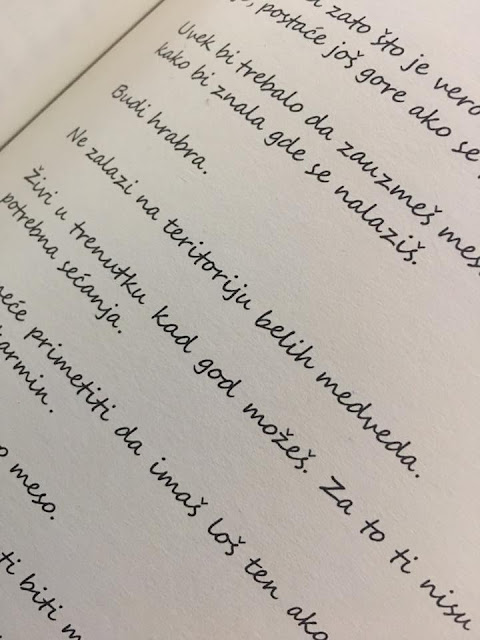 zato što je
postaće još gore ako se
Uvek bi trebalo da zauzmeš
kako bi znala gde se nalaziš.
Budi hrabra.
Ne zalazi na teritoriju belih medveda.
Živi u trenutku kad god možeš. Za to ti nisu
potrebna sećanja.
primetiti da imaš loš ten ako
meso.
ti biti